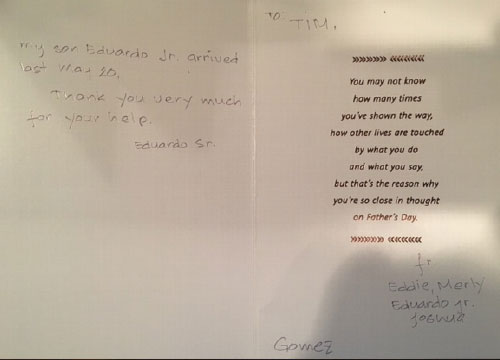 my son Eduardo Jr. arrived
last May 20,
Thank you very much
for your help.
Eduardo Sr.
TO: TIM,
»»»»»» «««««««
You may not know
how many times
you've shown the way,
how other lives are touched
by what you do
and what you say,
but that's the reason why
you're so close in thought
on Father's Day.
»»»»»» «««««««
fr
Eddie, Merly
Eduardo jr.
joshua
Gomez